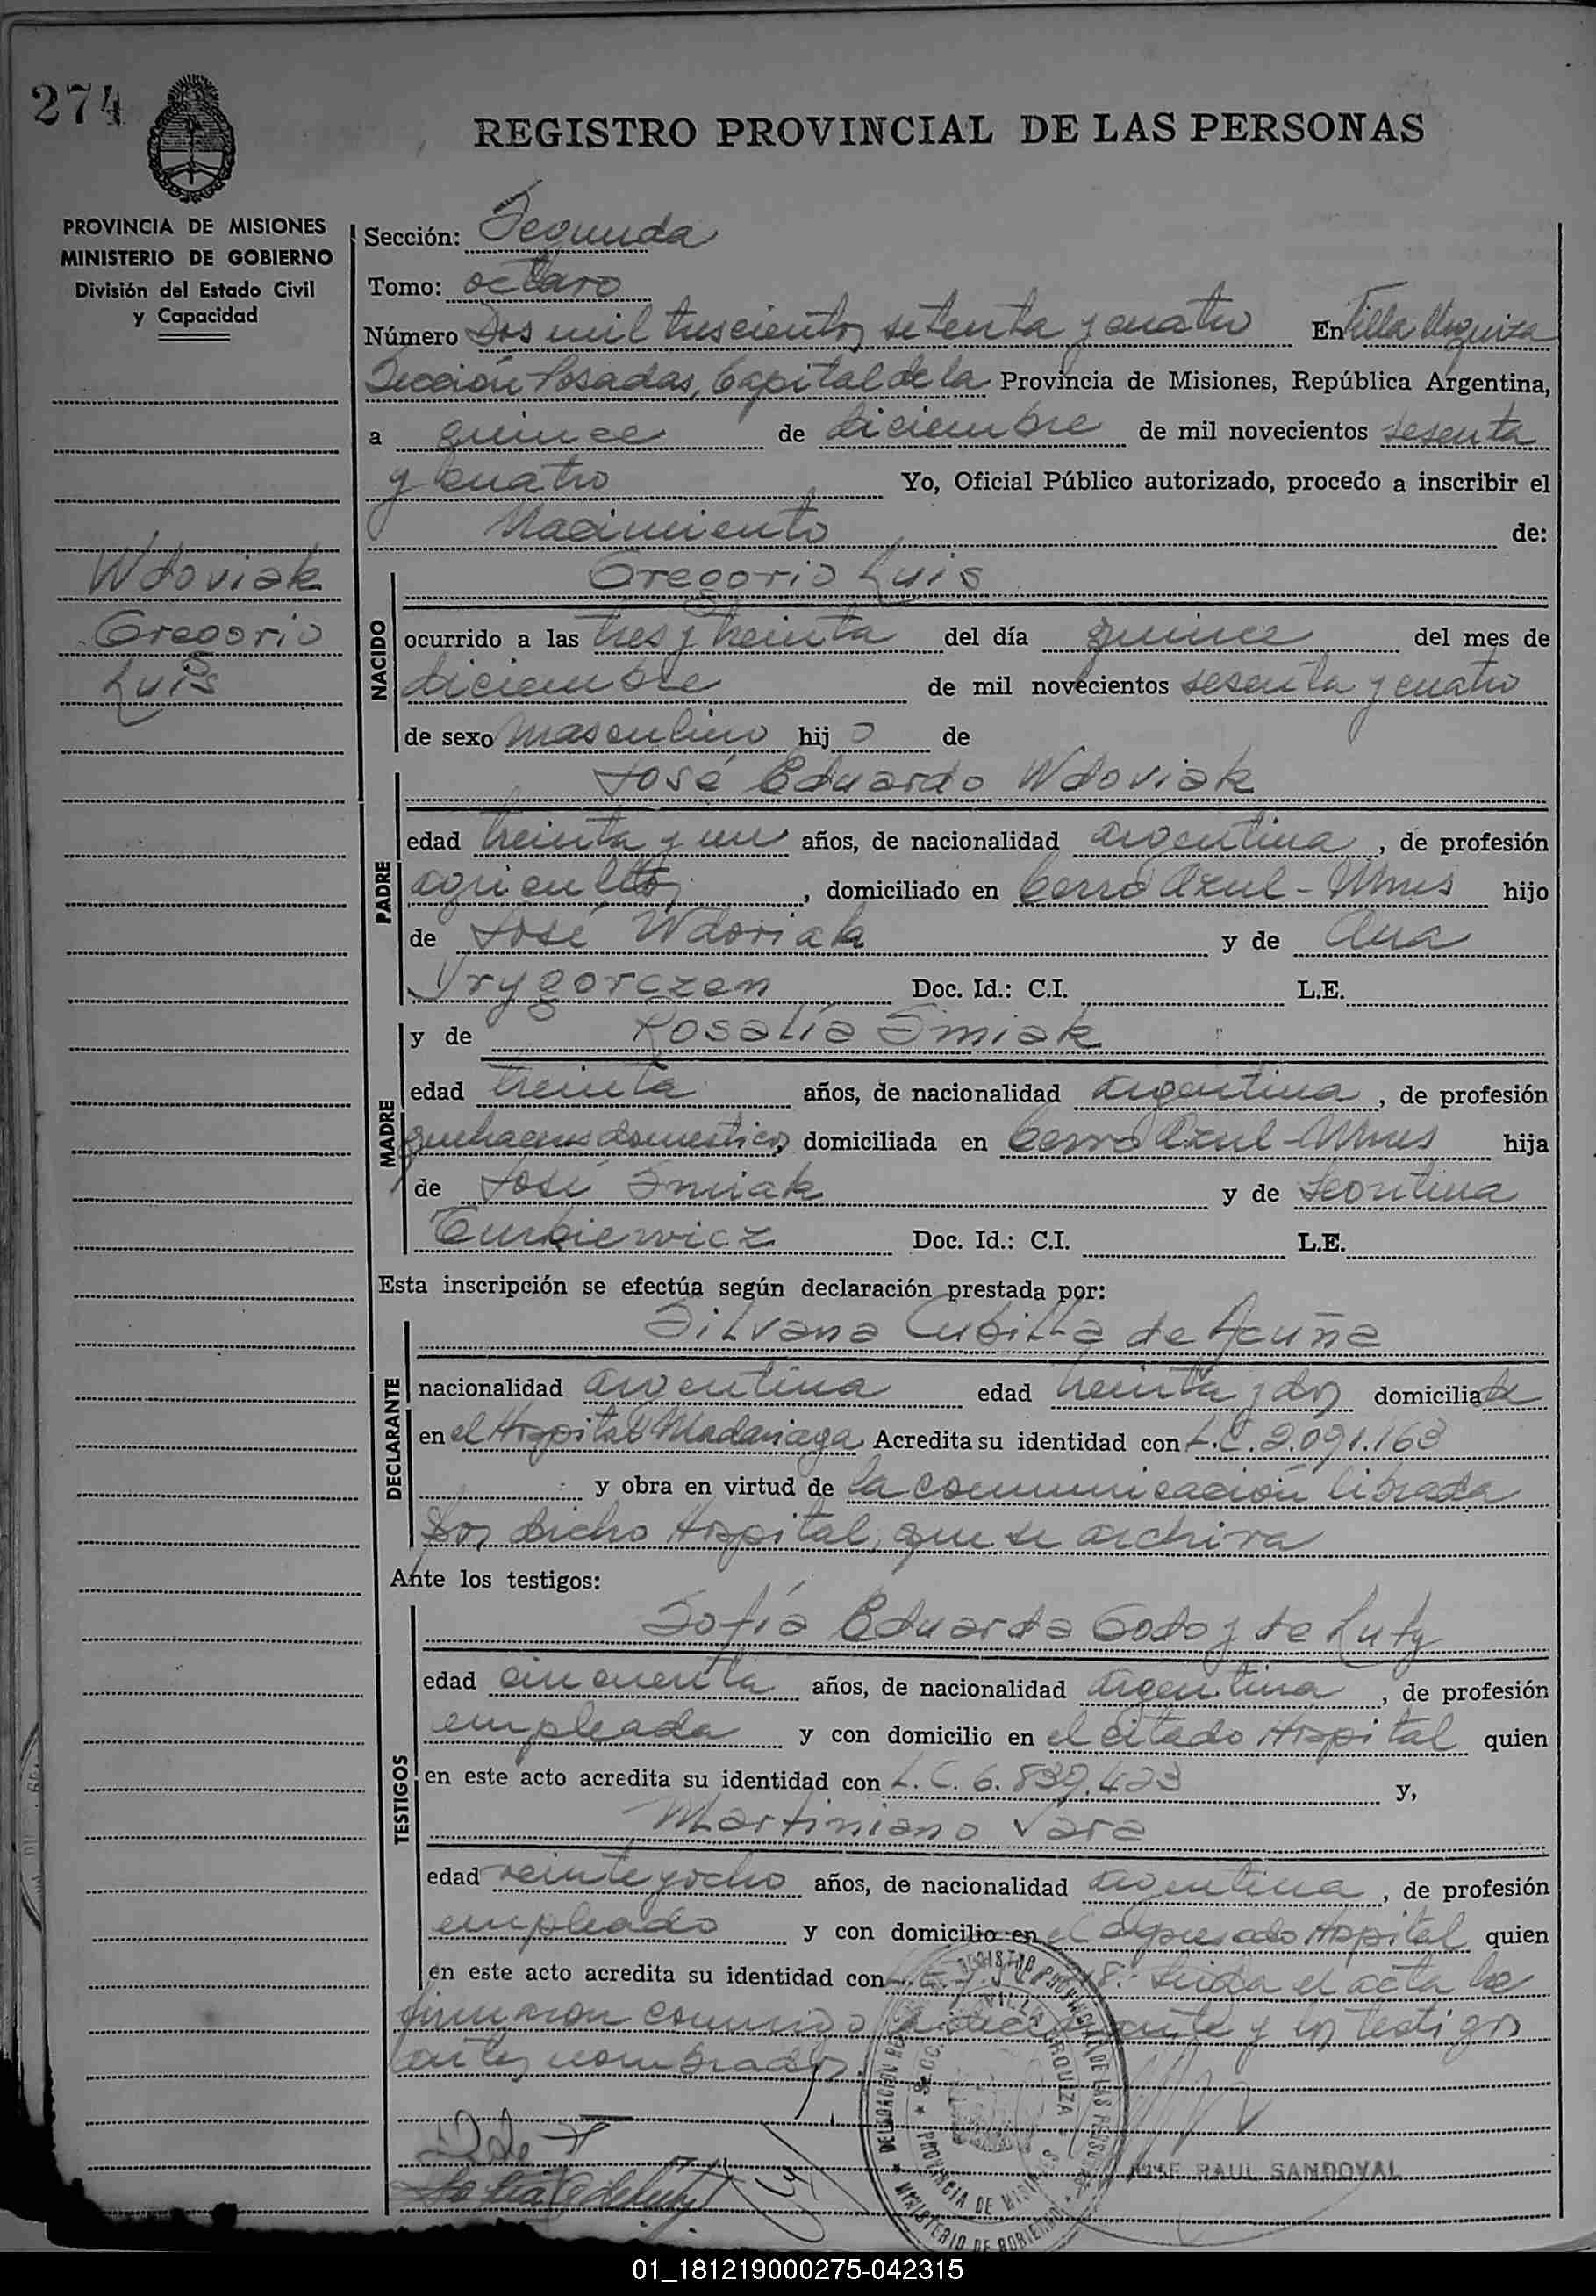 274
REGISTRO PROVINCIAL DE LAS PERSONAS
PROVINCIA DE MISIONES
MINISTERIO DE GOBIERNO
División del Estado Civil
y Capacidad
Wdoviak
Gregorio
Luis
Sección: Segunda
Tomo: octavo
Número Dos mil trescientos setenta y cuatro En Villa Urquiza
Sección Posadas, Capital de la Provincia de Misiones, República Argentina,
a quince de diciembre de mil novecientos sesenta
y cuatro Yo, Oficial Público autorizado, procedo a inscribir el
Nacimiento de:
NACIDO
Gregorio Luis
ocurrido a las tres y treinta del día quince del mes de
diciembre de mil novecientos sesenta y cuatro
de sexo masculino hijo de
PADRE
José Eduardo Wdoviak
edad treinta y un años, de nacionalidad argentina, de profesión
agricultor, domiciliado en Cerro Azul - Mnes hijo
de José Wdoviak y de Ana
Doc. Id.: C.I. L.E.
MADRE
y de Rosalía Smiak
edad treinta años, de nacionalidad argentina, de profesión
quehaceres domesticos domiciliada en Cerro Azul - Mnes hija
de José Smiak y de Leontina
Doc. Id.: C.I. L.E.
Esta inscripción se efectúa según declaración prestada por:
DECLARANTE
Silvana Cubilla de Acuña
nacionalidad argentina edad treinta y dos domiciliada
en el Hospital Madariaga Acredita su identidad con L.C. 2.091.163
y obra en virtud de la comunicación librada
por dicho Hospital, que se archiva
Ante los testigos:
TESTIGOS
Sofía Eduarda Godoy de Luty
edad cincuenta años, de nacionalidad argentina, de profesión
empleada y con domicilio en el citado Hospital quien
en este acto acredita su identidad con L.C. 6.839.423 y,
Martiniano Vara
edad veinte y ocho años, de nacionalidad argentina, de profesión
empleado y con domicilio en el expresado Hospital quien
en este acto acredita su identidad con Leida el acta la
firmaron conmigo la declarante y los testigos
antes nombrados.
JOSE RAUL SANDOVAL
01_181219000275-042315